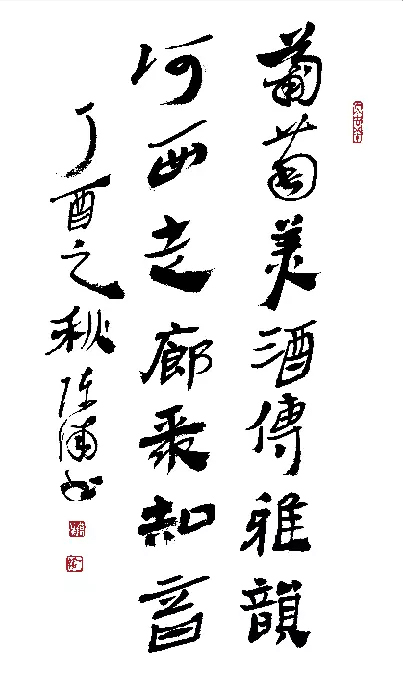 葡萄美酒傳雅韻
河西走廊聚知音
丁酉之秋陈浦书